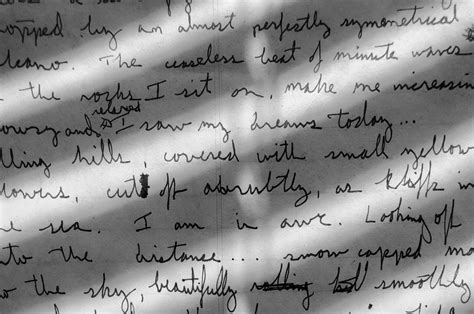 opped by an almost perfectly symmetrical
lcano. The ceaseless beat of minute waves
the rocks I sit on, make me increasin
relaxed
owsy and I saw my dreams today...
lling hills, covered with small yellow
lowers, cut off abrubtly, as kliffs in
e sea. I am in awe. Looking off
nto the distance... snow capped mo
o the sky, beautifully smoothly